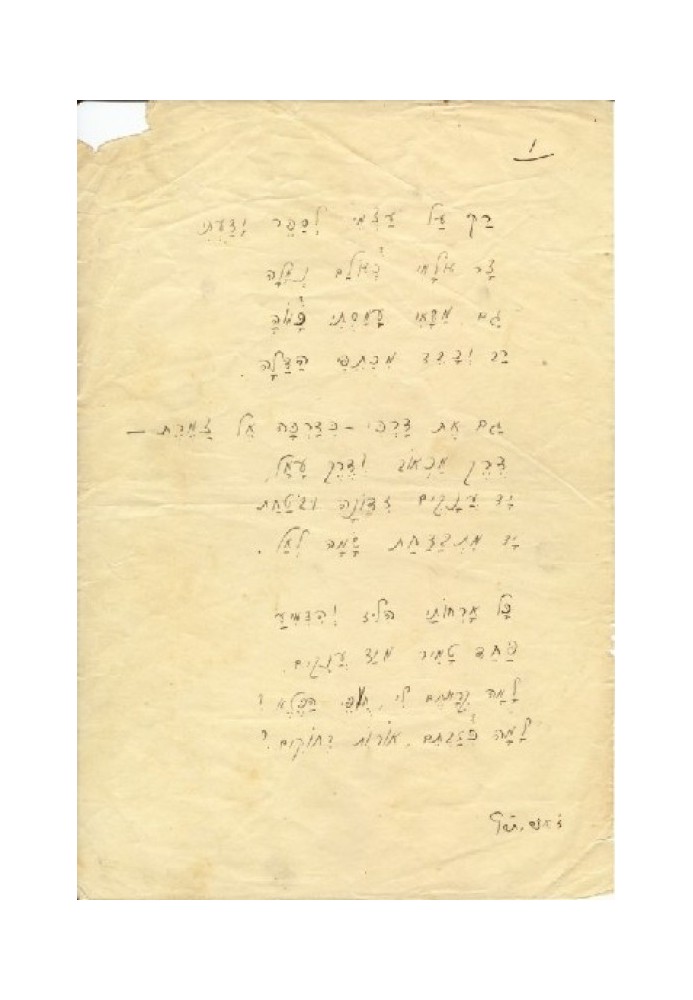 1
רַק עַל עַצְמִי לְסַפֵּר יָדַעְתִּי
צַר עוֹלָמִי כְּעוֹלַם נְמָלָה
גַּם מַשָּׂאִי עָמַסְתִּי כָּמוֹהָ
רַב וְכָבֵד מִכְּתֵפִי הַדַּלָּה.
גַּם אֶת דַּרְכִּי – כְּדַרְכָּהּ אֶל צַמֶּרֶת –
דֶּרֶךְ מַכְאוֹב וְדֶרֶךְ עָמָל,
יַד עֲנָקִים זְדוֹנָה וּבוֹטַחַת
יַד מִתְבַּדַּחַת שָׂמָה לְאַל.
כָּל אָרְחוֹתַי הליז וְהִדְמִיעַ
פַּחַד טָמִיר מִיַּד עֲנָקִים.
לָמָּה קְרָאתֶם לִי, חוֹפֵי הַפֶּלֶא?
לָמָּה כְּזַבְתֶּם, אוֹרוֹת רְחוֹקִים?